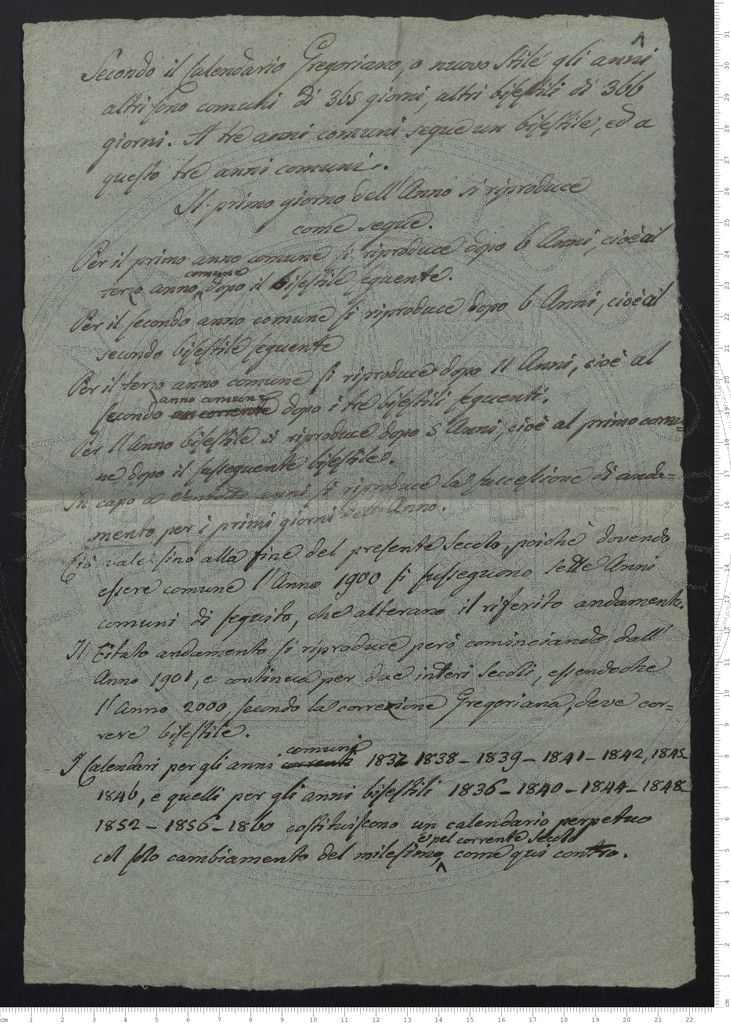 1
Secondo il Calendario Gregoriano, o nuovo Stile gli anni
altri sono comuni di 365 giorni, altri bisestili di 366
giorni. A tre anni comuni segue un bisestile, ed a
questo tre anni comuni.
Il primo giorno dell'Anno si riproduce
come segue.
Per il primo anno comune si riproduce dopo 6 Anni, cioè al
terzo anno comune dopo il bisestile seguente.
Per il secondo anno comune si riproduce dopo 6 Anni, cioè al
secondo bisestile seguente
Per il terzo anno comune si riproduce dopo 11 Anni, cioè al
secondo anno comune dopo i tre bisestili seguenti.
Per l'Anno bisestile si riproduce dopo 5 Anni, cioè al primo comu-
ne dopo il susseguente bisestile.
In capo a anni si riproduce la successione di anda-
mento per i primi giorni dell'Anno.
Ciò vale sino alla fine del presente Secolo, poichè dovendo
essere comune l'Anno 1900 si susseguono sette Anni
comuni di seguito, che alterano il riferito andamento.
Il citato andamento si riproduce però cominciando dall'
Anno 1901, e continua per due interi secoli, essendo che
l'Anno 2000 secondo la correzione Gregoriana, deve cor-
rere bisestile.
I Calendari per gli anni comuni 1837 1838 - 1839 - 1841 - 1842, 1845
1846, e quelli per gli anni bisestili 1836 - 1840 - 1844 - 1848
1852 - 1856 - 1860 costituiscono un calendario perpetuo
col solo cambiamento del millesimo, e pel corrente Secolo come qui contro.